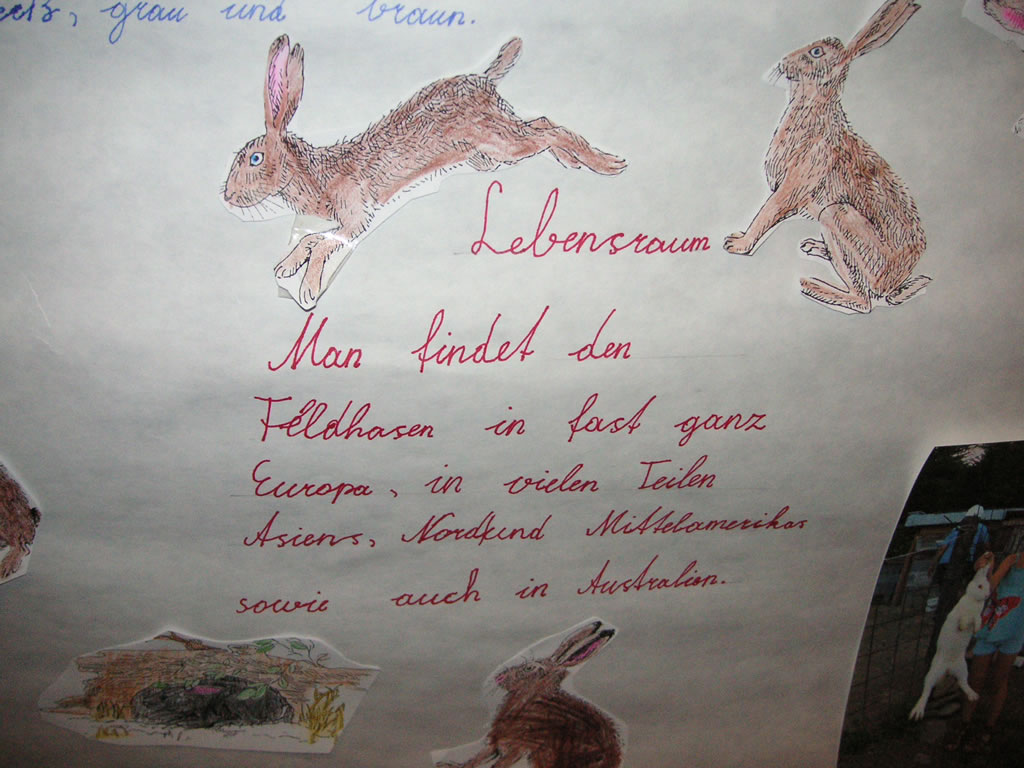 grau und braun.
Lebensraum
Man findet den
Feldhasen in fast ganz
Europa, in vielen Teilen
Asiens, Nord und Mittelamerikas
sowie auch in Australien.